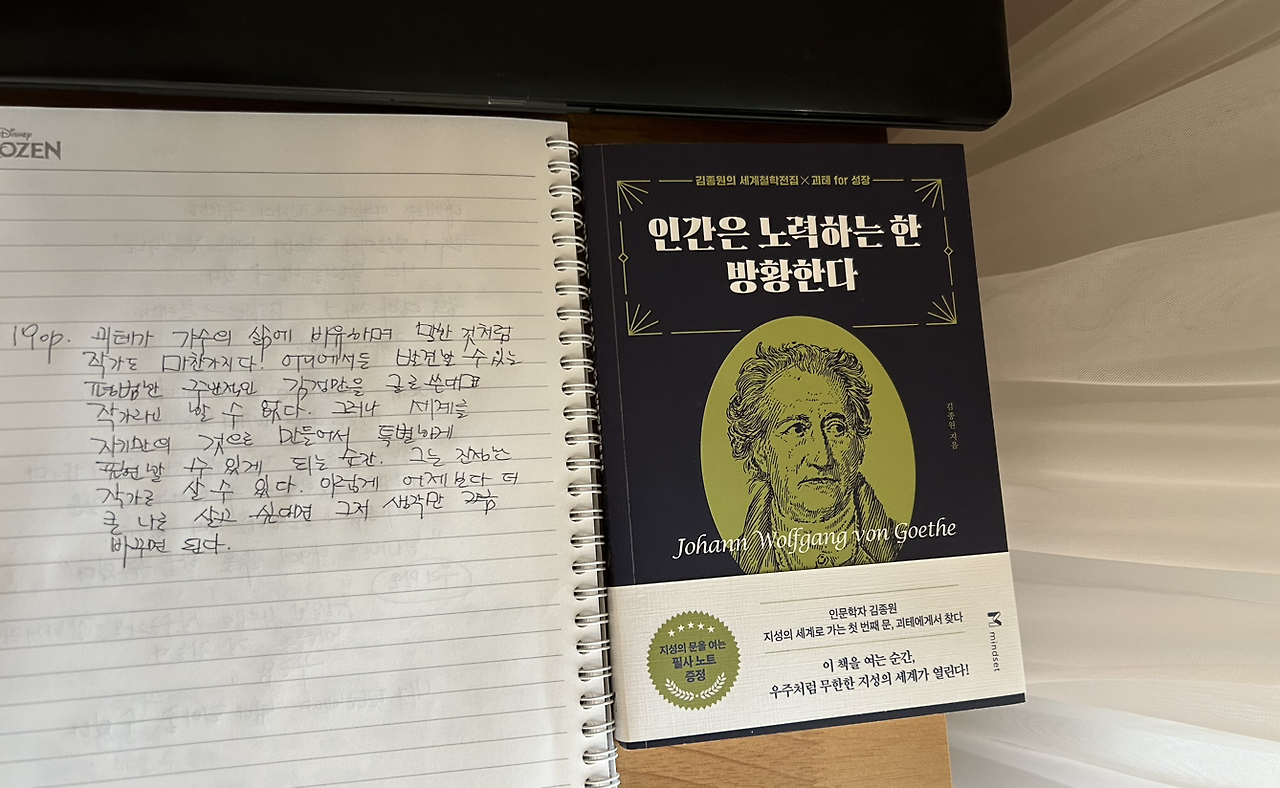 Disney
OZEN
190p. 괴테가 가수의 삶에 비유하며 말한 것처럼
작가도 마찬가지다. 어디에서든 발견할 수 있는
평범한 주변적인 감정만을 글로 쓴대도
작가라고 할 수 없다. 그러나 세계를
자기만의 것으로 만들어서 특별하게
표현할 수 있게 되는 순간. 그는 진정한
작가로 살 수 있다. 이렇게 어제보다 더
큰 나로 살고 싶다면 그저 생각만
바꾸면 된다.
김종원의 세계철학전집×괴테 for 성장
인간은 노력하는 한
방황한다
김종원 지음
Johann Wolfgang von Goethe
인문학자 김종원
지성의 세계로 가는 첫 번째 문, 괴테에게서 찾다
이 책을 여는 순간,
우주처럼 무한한 지성의 세계가 열린다!
지성의 문을 여는
필사 노트
증정
mindset